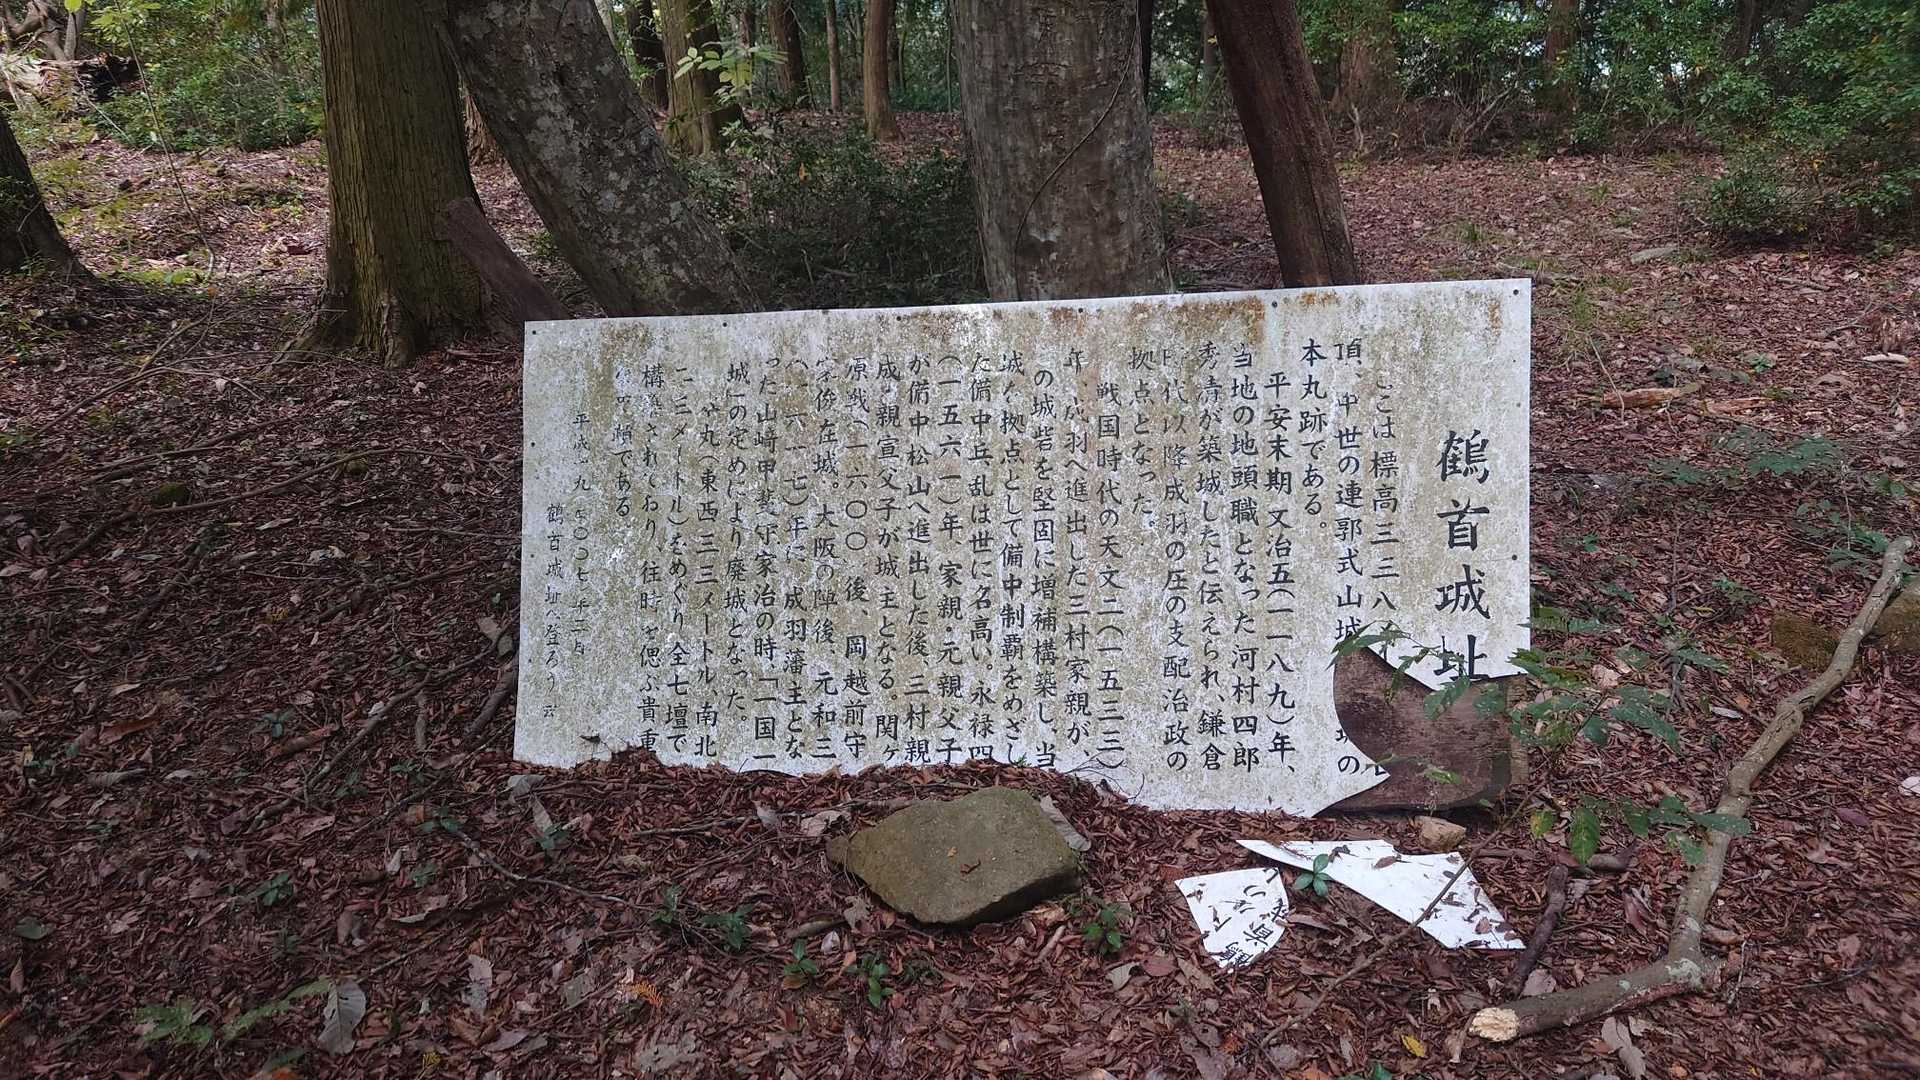 鶴首城址
ここは標高三三八
頂、中世の連郭式山城 の
本丸跡である。
平安末期文治五(一一八九)年、
当地の地頭職となった河村四郎
秀清が築城したと伝えられ、鎌倉
時代以降成羽の庄の支配治政の
拠点となった。
戦国時代の天文二(一五三三)
年、成羽へ進出した三村家親が、
この城砦を堅固に増補構築し、当
城を拠点として備中制覇をめざし
た備中兵乱は世に名高い。永禄四
(一五六一)年、家親・元親父子
が備中松山へ進出した後、三村親
成・親宣父子が城主となる。関ヶ
原戦(一六〇〇)後、岡越前守
家俊在城。大阪の陣後、元和三
(一六一七)年に 成羽藩主とな
った山崎甲斐守家治の時、「一国一
城」の定めにより廃城となった。
丸(東西三三メートル、南北
二三メートル)をめぐり全七壇で
構築されており、往時を偲ぶ貴重
である
平成 九 二〇〇七年三月
鶴首城址へ登ろう会
鶴首城